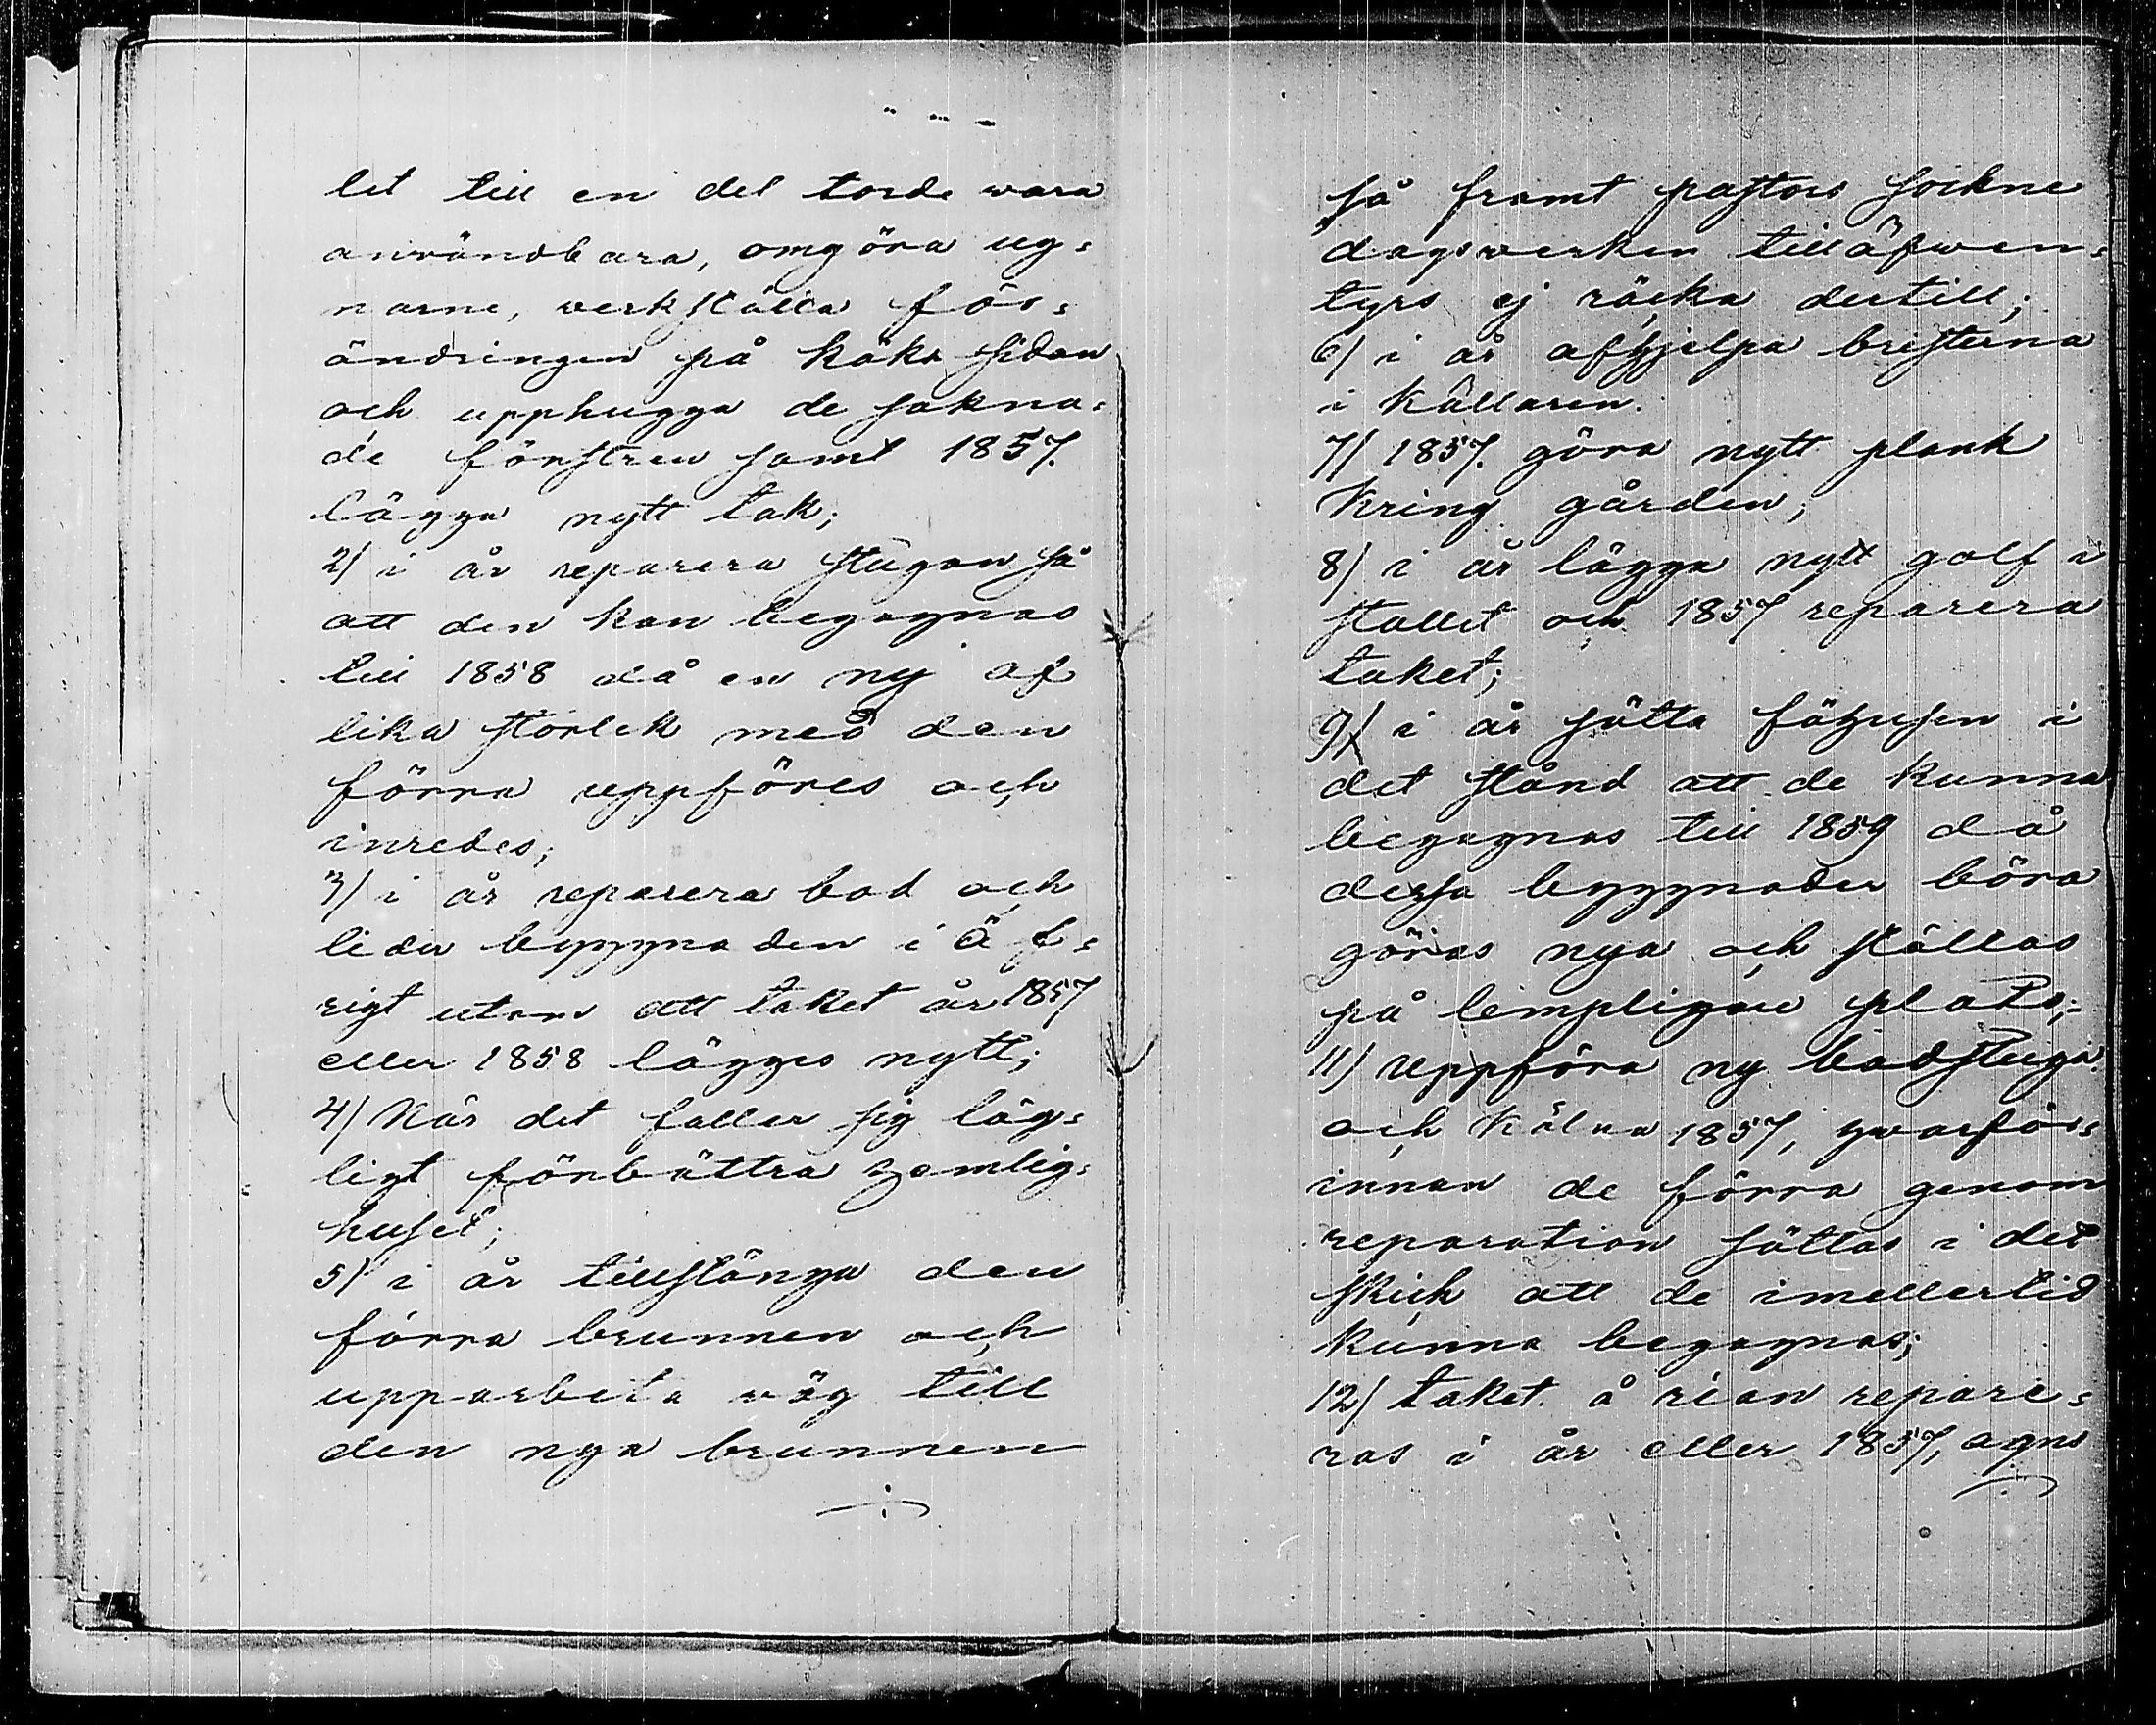 let till en del torde wara
användbara, omgöra ug=
narne, verkställa för=
ändringen på köks sidan
och upphugga de sakna=
de fönstren samt 1857.
lägga nytt tak;
2) i år reparera stugan så
att den kan begagnas
till 1858 då en ny af
lika storlek med den
förra uppföres och
inredes;
3) i år reparera bod och
lider byggnaden i öf=
rigt utom att taket år 1857
eller 1858 lägges nytt;
4) När det faller sig läg=
ligt förbättra hemlig=
huset;
5) i år tillstänga den
förra brunnen och
upparbeta väg till
den nya brunnen
så framt pastors sockne
dagsverken tilläfwen=
tyrs ej räcka dertill;
6) i år afhjelpa bristerna
i källaren.
7) 1857. göra nytt plank
kring gården;
8) i år lägga nytt golf i
stallet och 1857 reparera
taket;
9) i år sätta fähusen i
det stånd att de kunna
begagnas till 1859 då
dessa byggnader böra
göras nya och ställas
på lempligare plats;
11) uppföra ny badstuga
och kölna 1857, hvarför=
innan de förra genom
reparation sättas i det
skick att de imellertid
kunna begagnas;
12) taket å rian repare=
ras i år eller 1857, agns